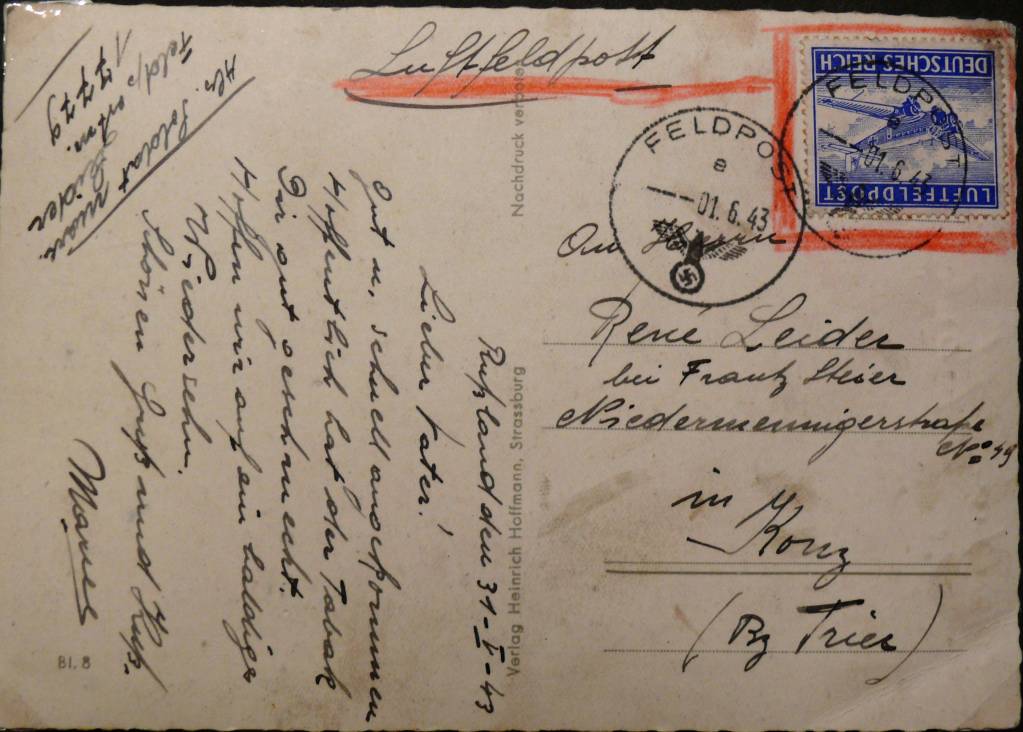 Luftfeldpost
DEUTSCHES REICH
LUFTFELDPOST
FELDPOST
e
-01.6.43
FELDPOST
e
-01.6.43
Abs. Soldat
Leider
Feldp
17779
Rußland den 31-V-43
Lieber Vater!
Gut u. schnell angekommen
Hoffentlich hat der Tabak
Dir gut geschmeckt.
Hoffen wir auf ein baldiges
Wiedersehn.
Schönen Gruß und Kuß.
Marcel
An Herrn
René Leider
bei Frantz Steier
Niedermennigerstraße
No 49
in
Konz
(Bz Trier)
Verlag Heinrich Hoffmann, Strassburg
Nachdruck verboten
Bl. 8